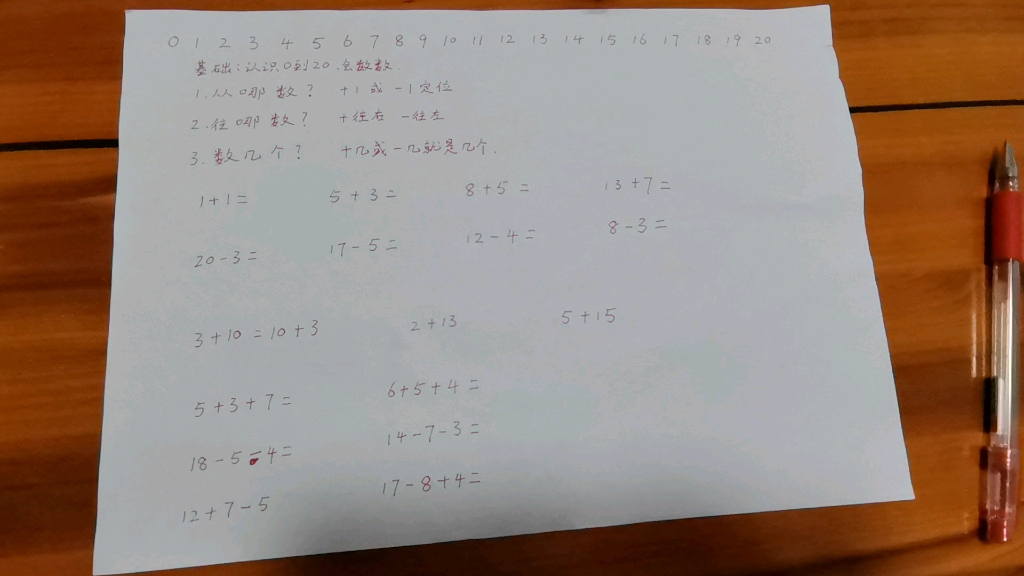 0 1 2 3 4 5 6 7 8 9 10 11 12 13 14 15 16 17 18 19 20
基础:认识0到20.会数数.
1.从哪数? +1或-1定位
2.往哪数? +往右 -往左
3.数几个? +几或-几就是几个.
1+1= 5+3= 8+5= 13+7=
20-3= 17-5= 12-4= 8-3=
3+10=10+3 2+13 5+15
5+3+7= 6+5+4=
18-5-4= 14-7-3=
12+7-5 17-8+4=